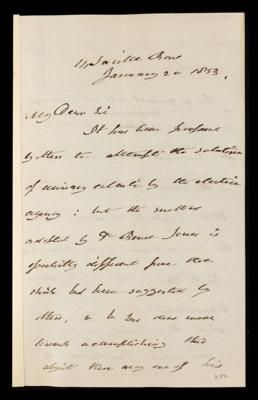 14 Saville Row
January 20 1853.
My Dear Sir
It has been proposed
by others to attempt the solution
of urinary calculi by the electric
agency: but the method
adopted by Dr Bence Jones is
essentially different from that
which had been suggested by
others, & he has done more
towards accomplishing this
object than any one of his